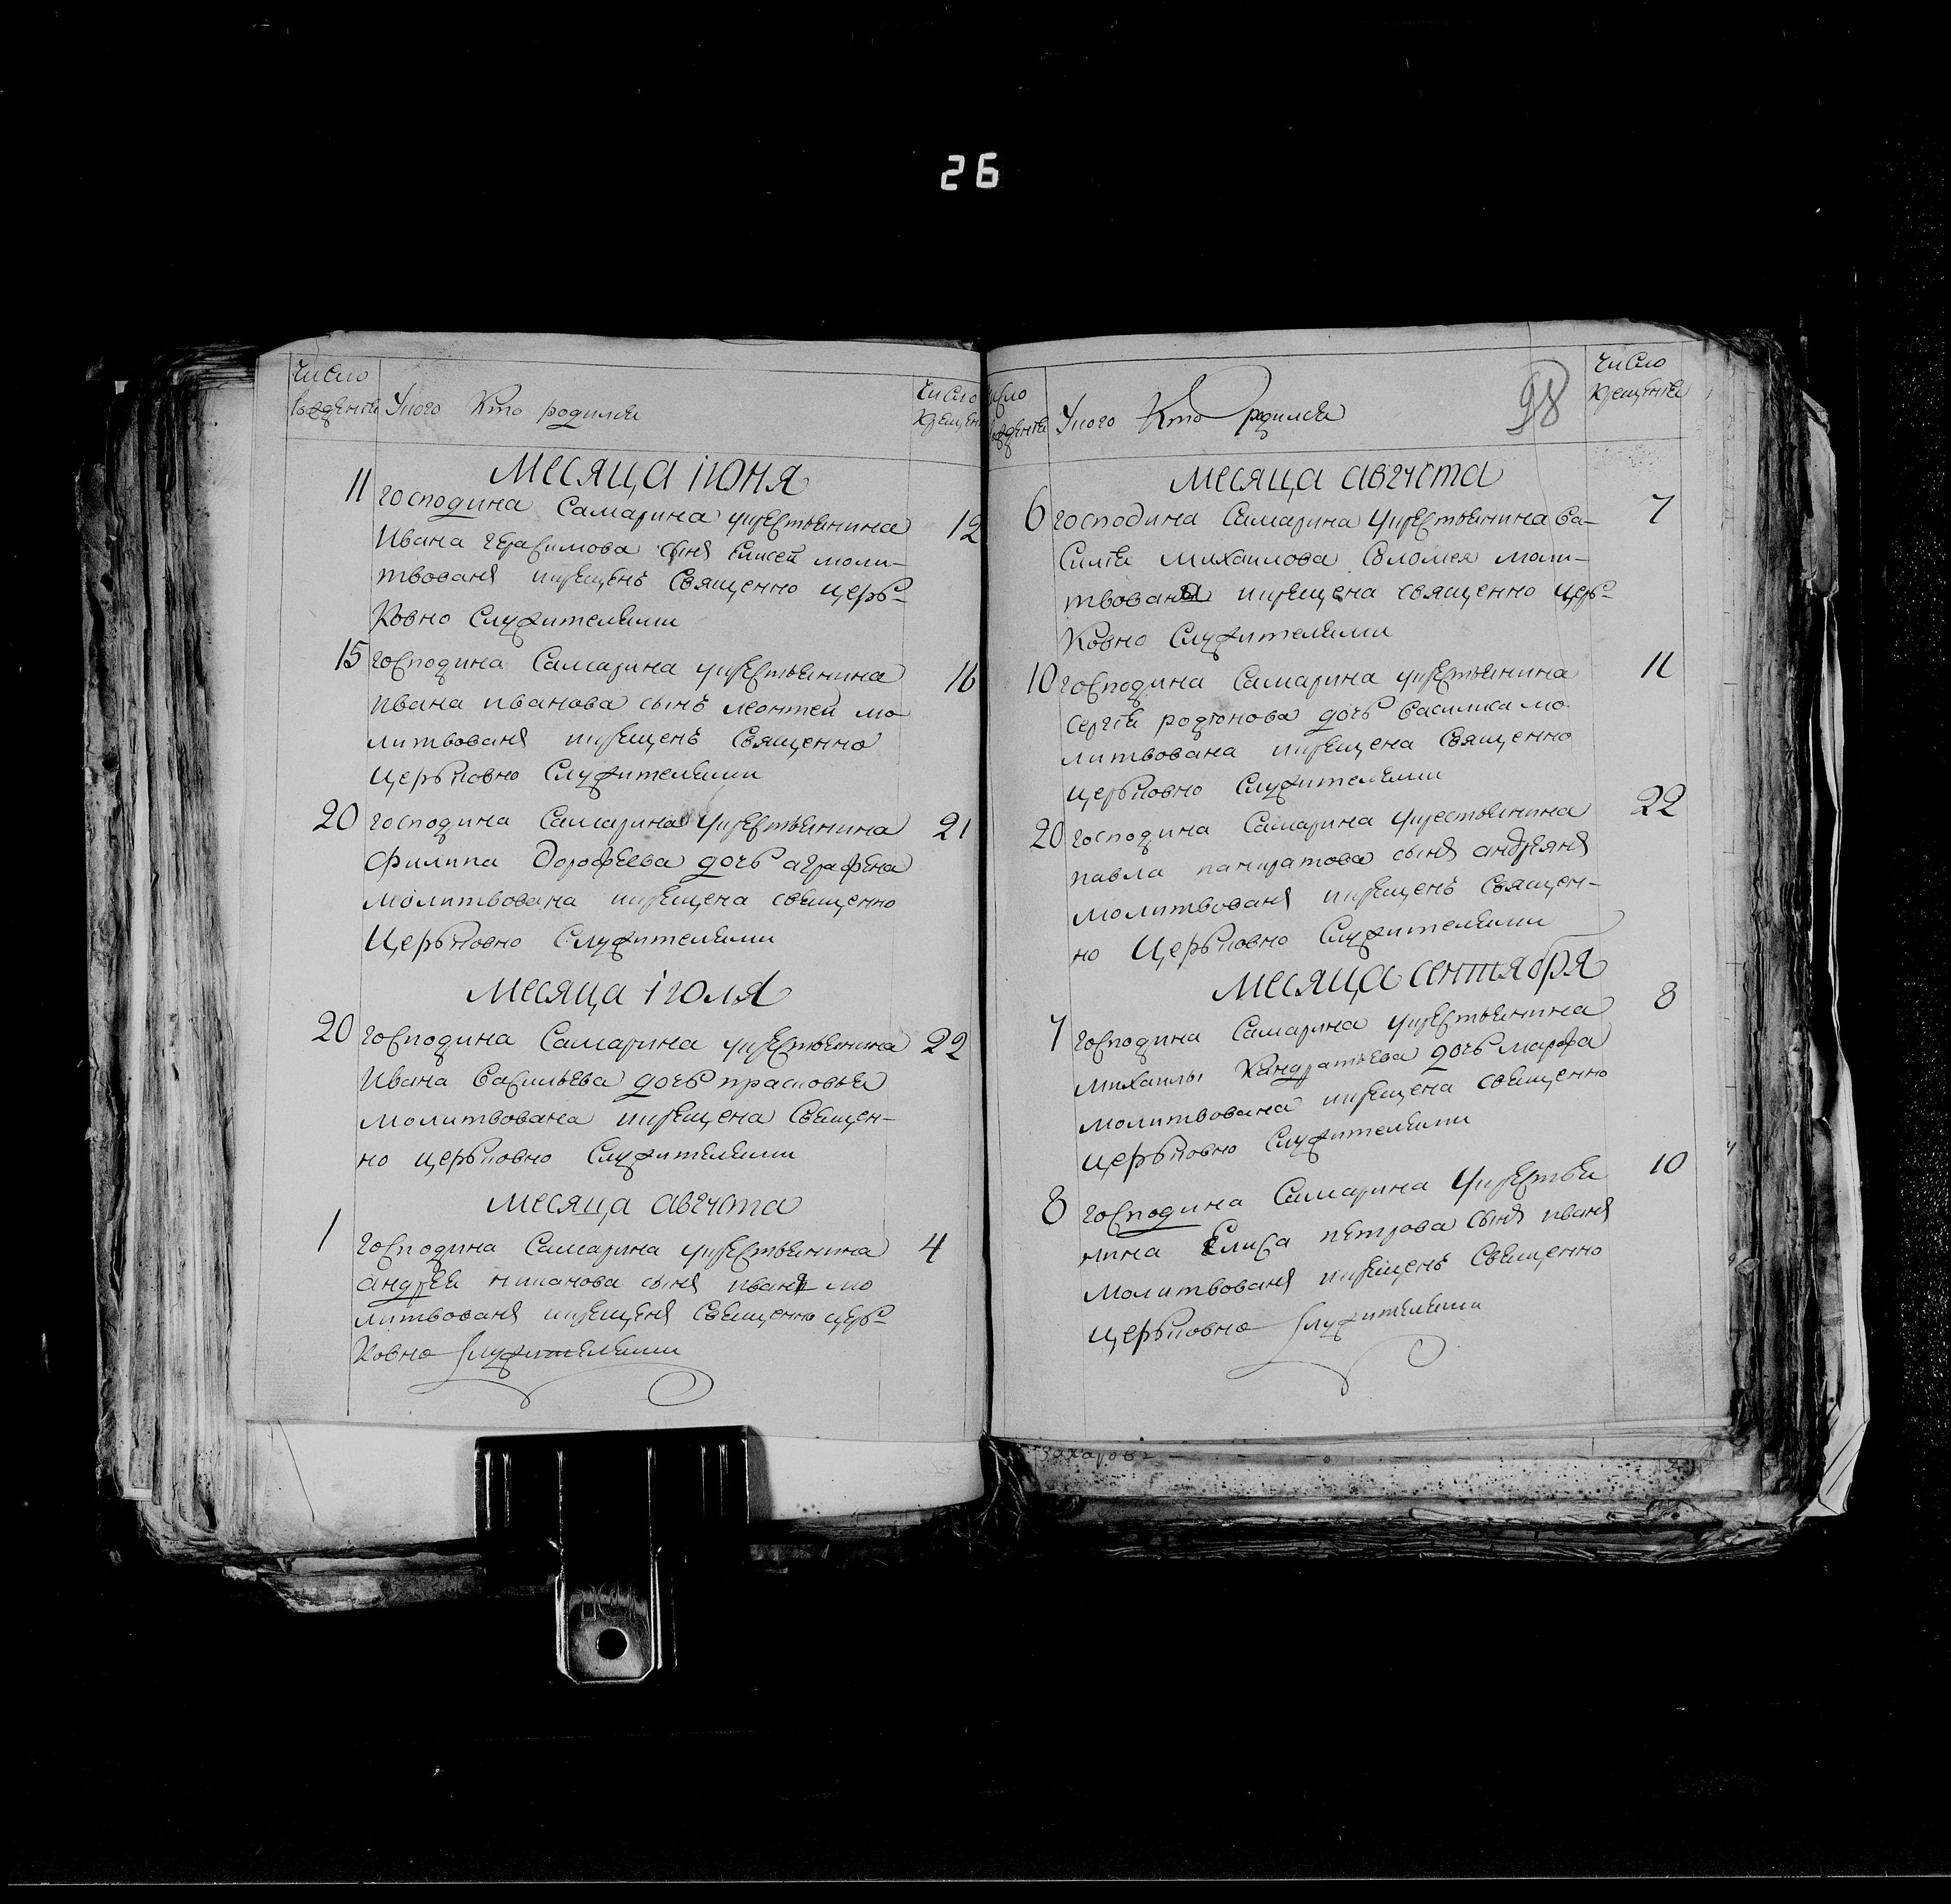 26
Число
рождения
Укого Кто родился
Число
крещен
Месяца июня
11 господина Самарина укрестьянина 12
Ивана Герасимова сынъ Елисей моли-
твованъ икрещенъ Священно церь-
ковно Служителями
15 господина Самарина укрестьянина 16
Ивана иванова сынъ леонтей мо
литвованъ икрещенъ Священно
церьковно Служителями
20 господина Самарина укрестьянина 21
Филипа Дорофеева дочь аграфена
молитвована икрещена священно
Церьковно Служителями
Месяца Iюля
20 господина Самарина укрестьянина 22
Ивана Васильева дочь прасковья
молитвована икрещена Священ-
но церьковно Служителями
месяца августа
1 господина Самарина укрестьянина 4
андрея никанова сынъ иванъ мо
литвованъ икрещенъ Священно церь-
ковно Служителями
число
рождения
Укого Кто родился
98
Число
крещения
месяца августа
6 господина Самарина укрестьянина Ва- 7
силья михаилова Соломея моли-
твована икрещена священно цер-
ковно Служителями
10 господина Самарина укрестьянина 11
Сергея родионова дочь василиса мо
литвована икрещена Священно
церьковно Служителями
20 господина Самарина укрестьянина 22
павла панкратова сынъ андреянъ
молитвованъ икрещенъ Священ-
но Церьковно Служителями
месяца сентября
7 господина Самарина укрестьянина 8
михаилы Кандратьева дочь марфа
молитвована икрещена священно
церьковно Служителями
8 господина Самарина укрестья 10
нина Елиса петрова сынъ иванъ
молитвованъ икрещенъ Священно
церьковно Служителями
захаровъ